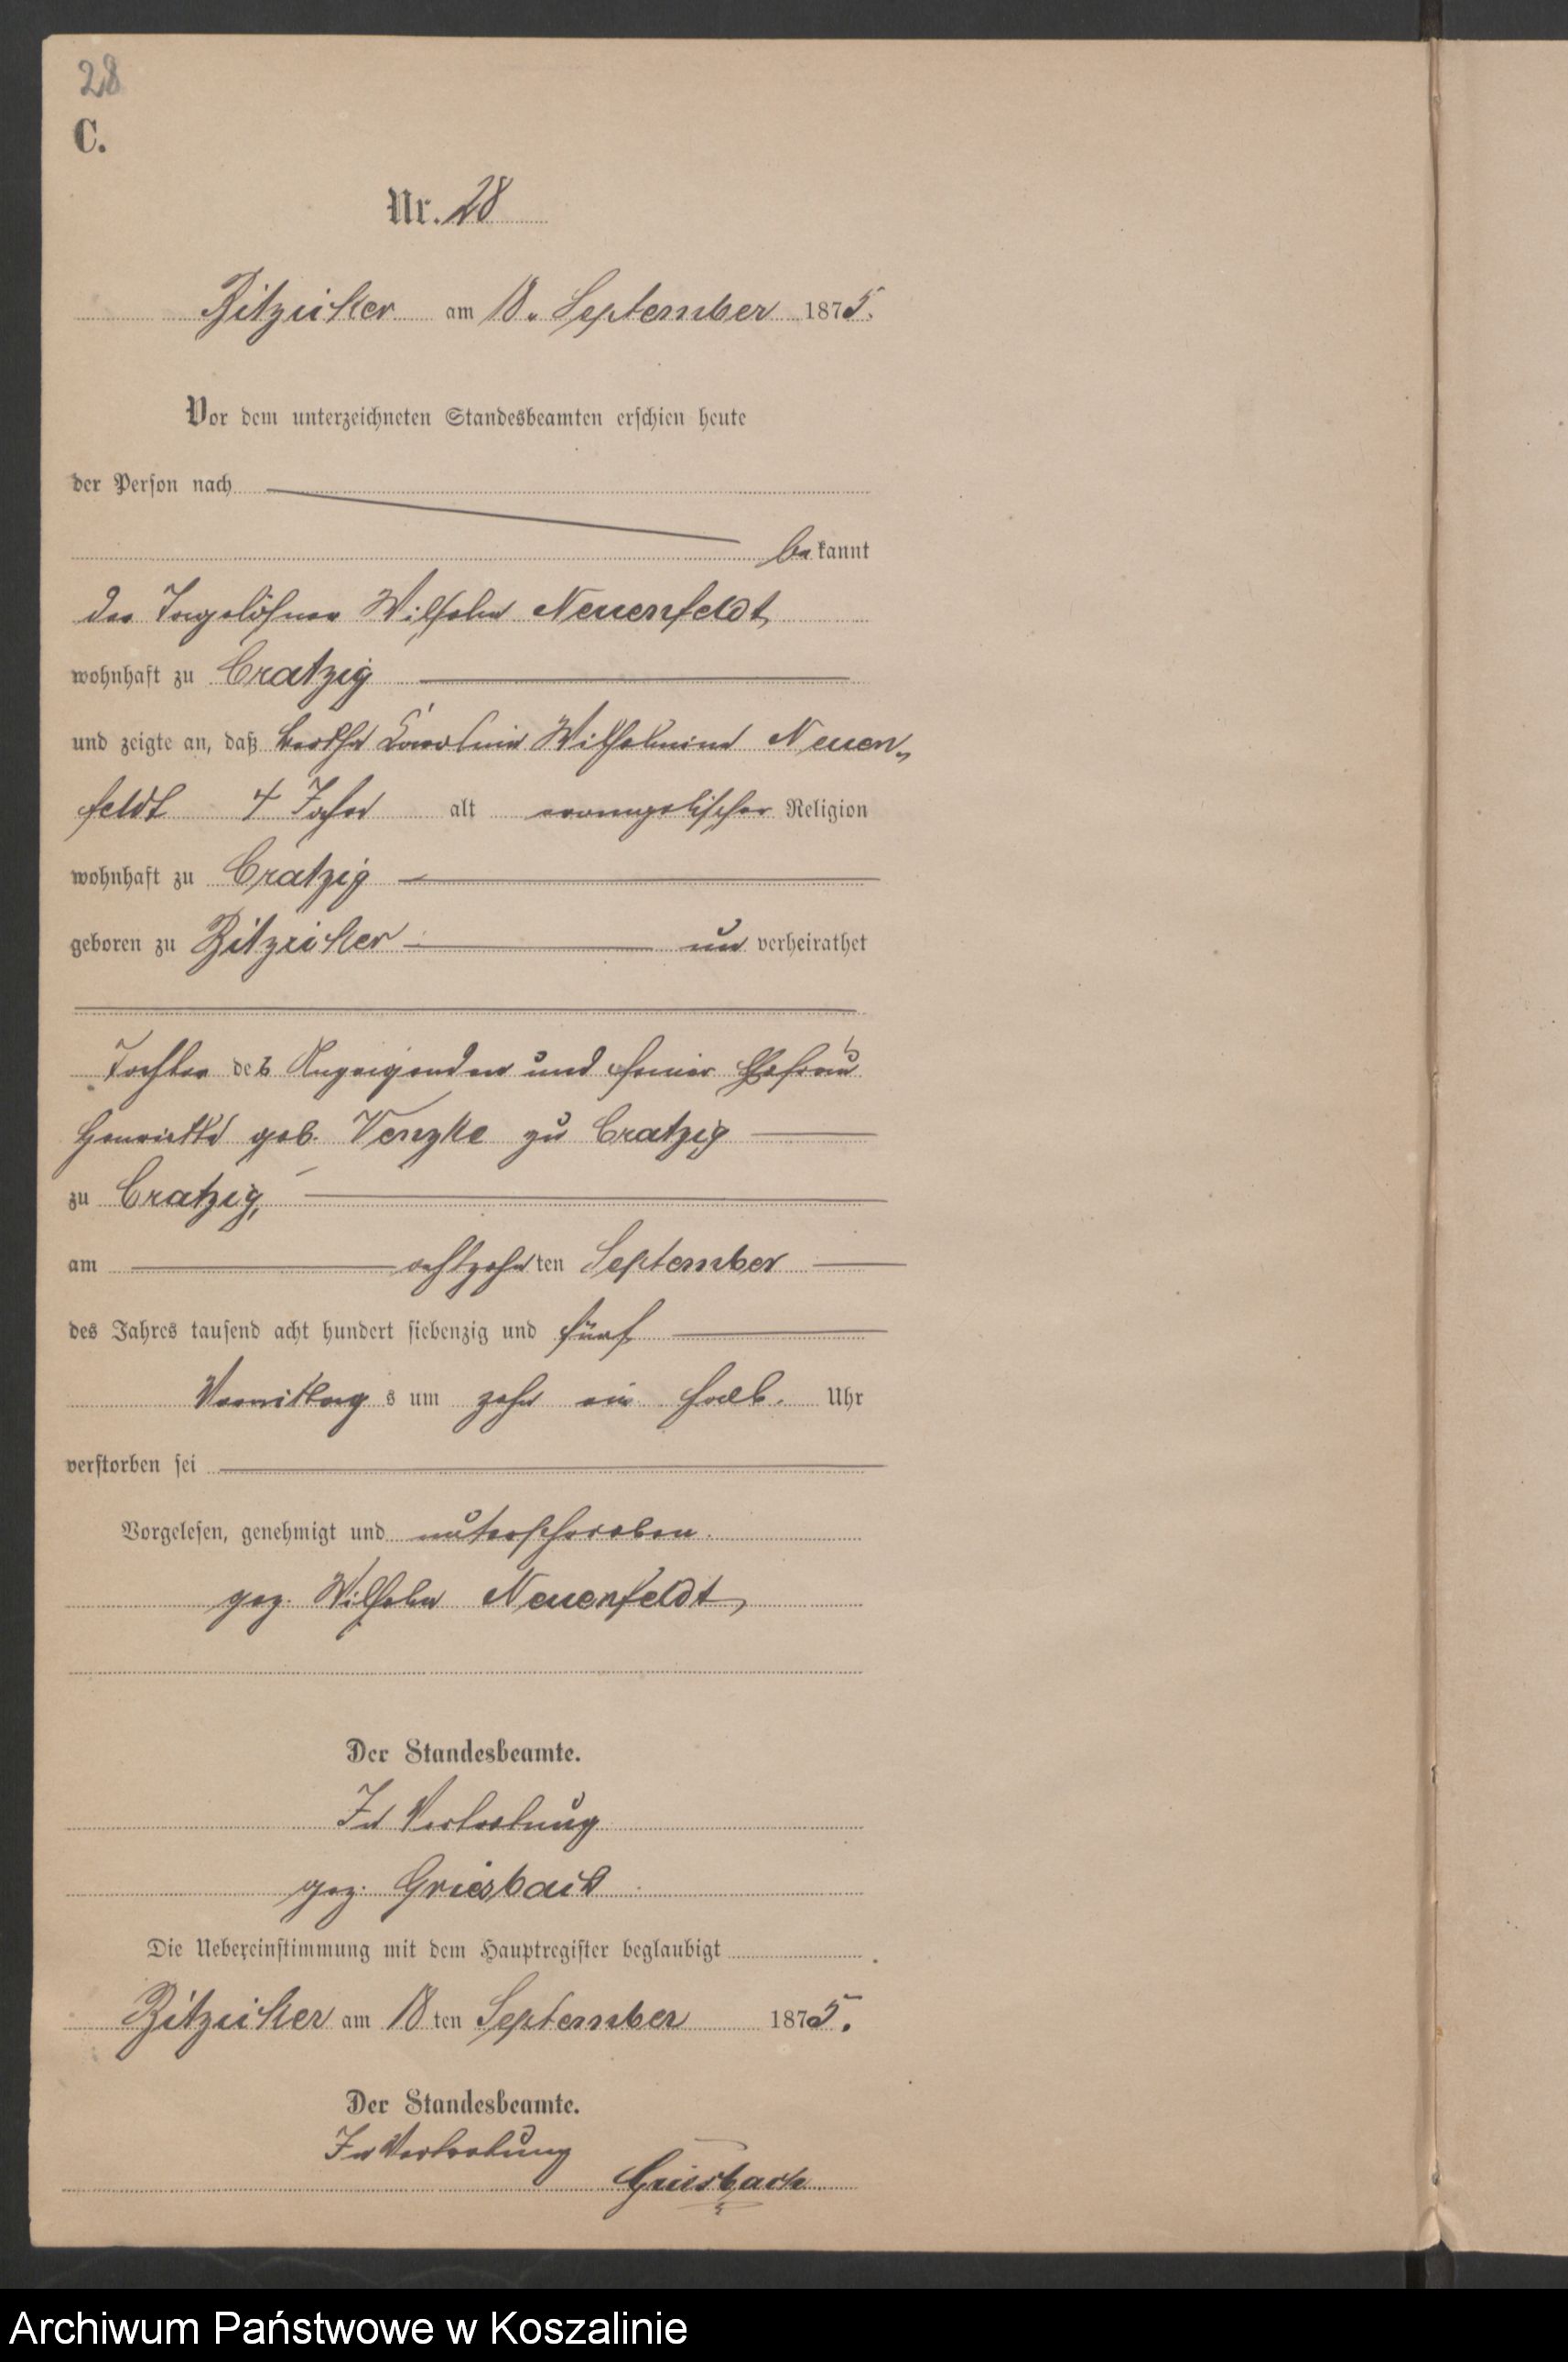 28
C.
Nr. 28
Bitziker am 18. September 1875.
Vor dem unterzeichneten Standesbeamten erschien heute
der Person nach
bekannt
der Tagelöhner Wilhelm Neuenfeldt,
wohnhaft zu Cratzig
und zeigte an, daß Bertha Caroline Wilhelmine Neuen-
feldt 4 Jahre alt evangelischer Religion
wohnhaft zu Cratzig
geboren zu Bitziker unverheirathet
Tochter des Anzeigenden und seiner Ehefrau
Henriette geb. Venzke zu Cratzig
zu Cratzig,
am achtzehnten September
des Jahres tausend acht hundert siebenzig und fünf
Vormittags um zehn ein halb Uhr
verstorben sei
Vorgelesen, genehmigt und unterschrieben.
gez. Wilhelm Neuenfeldt,
Der Standesbeamte.
In Vertretung
gez. Griesbach
Die Uebereinstimmung mit dem Hauptregister beglaubigt
Bitziker am 18ten September 1875.
Der Standesbeamte.
In Vertretung
Griesbach
Archiwum Państwowe w Koszalinie